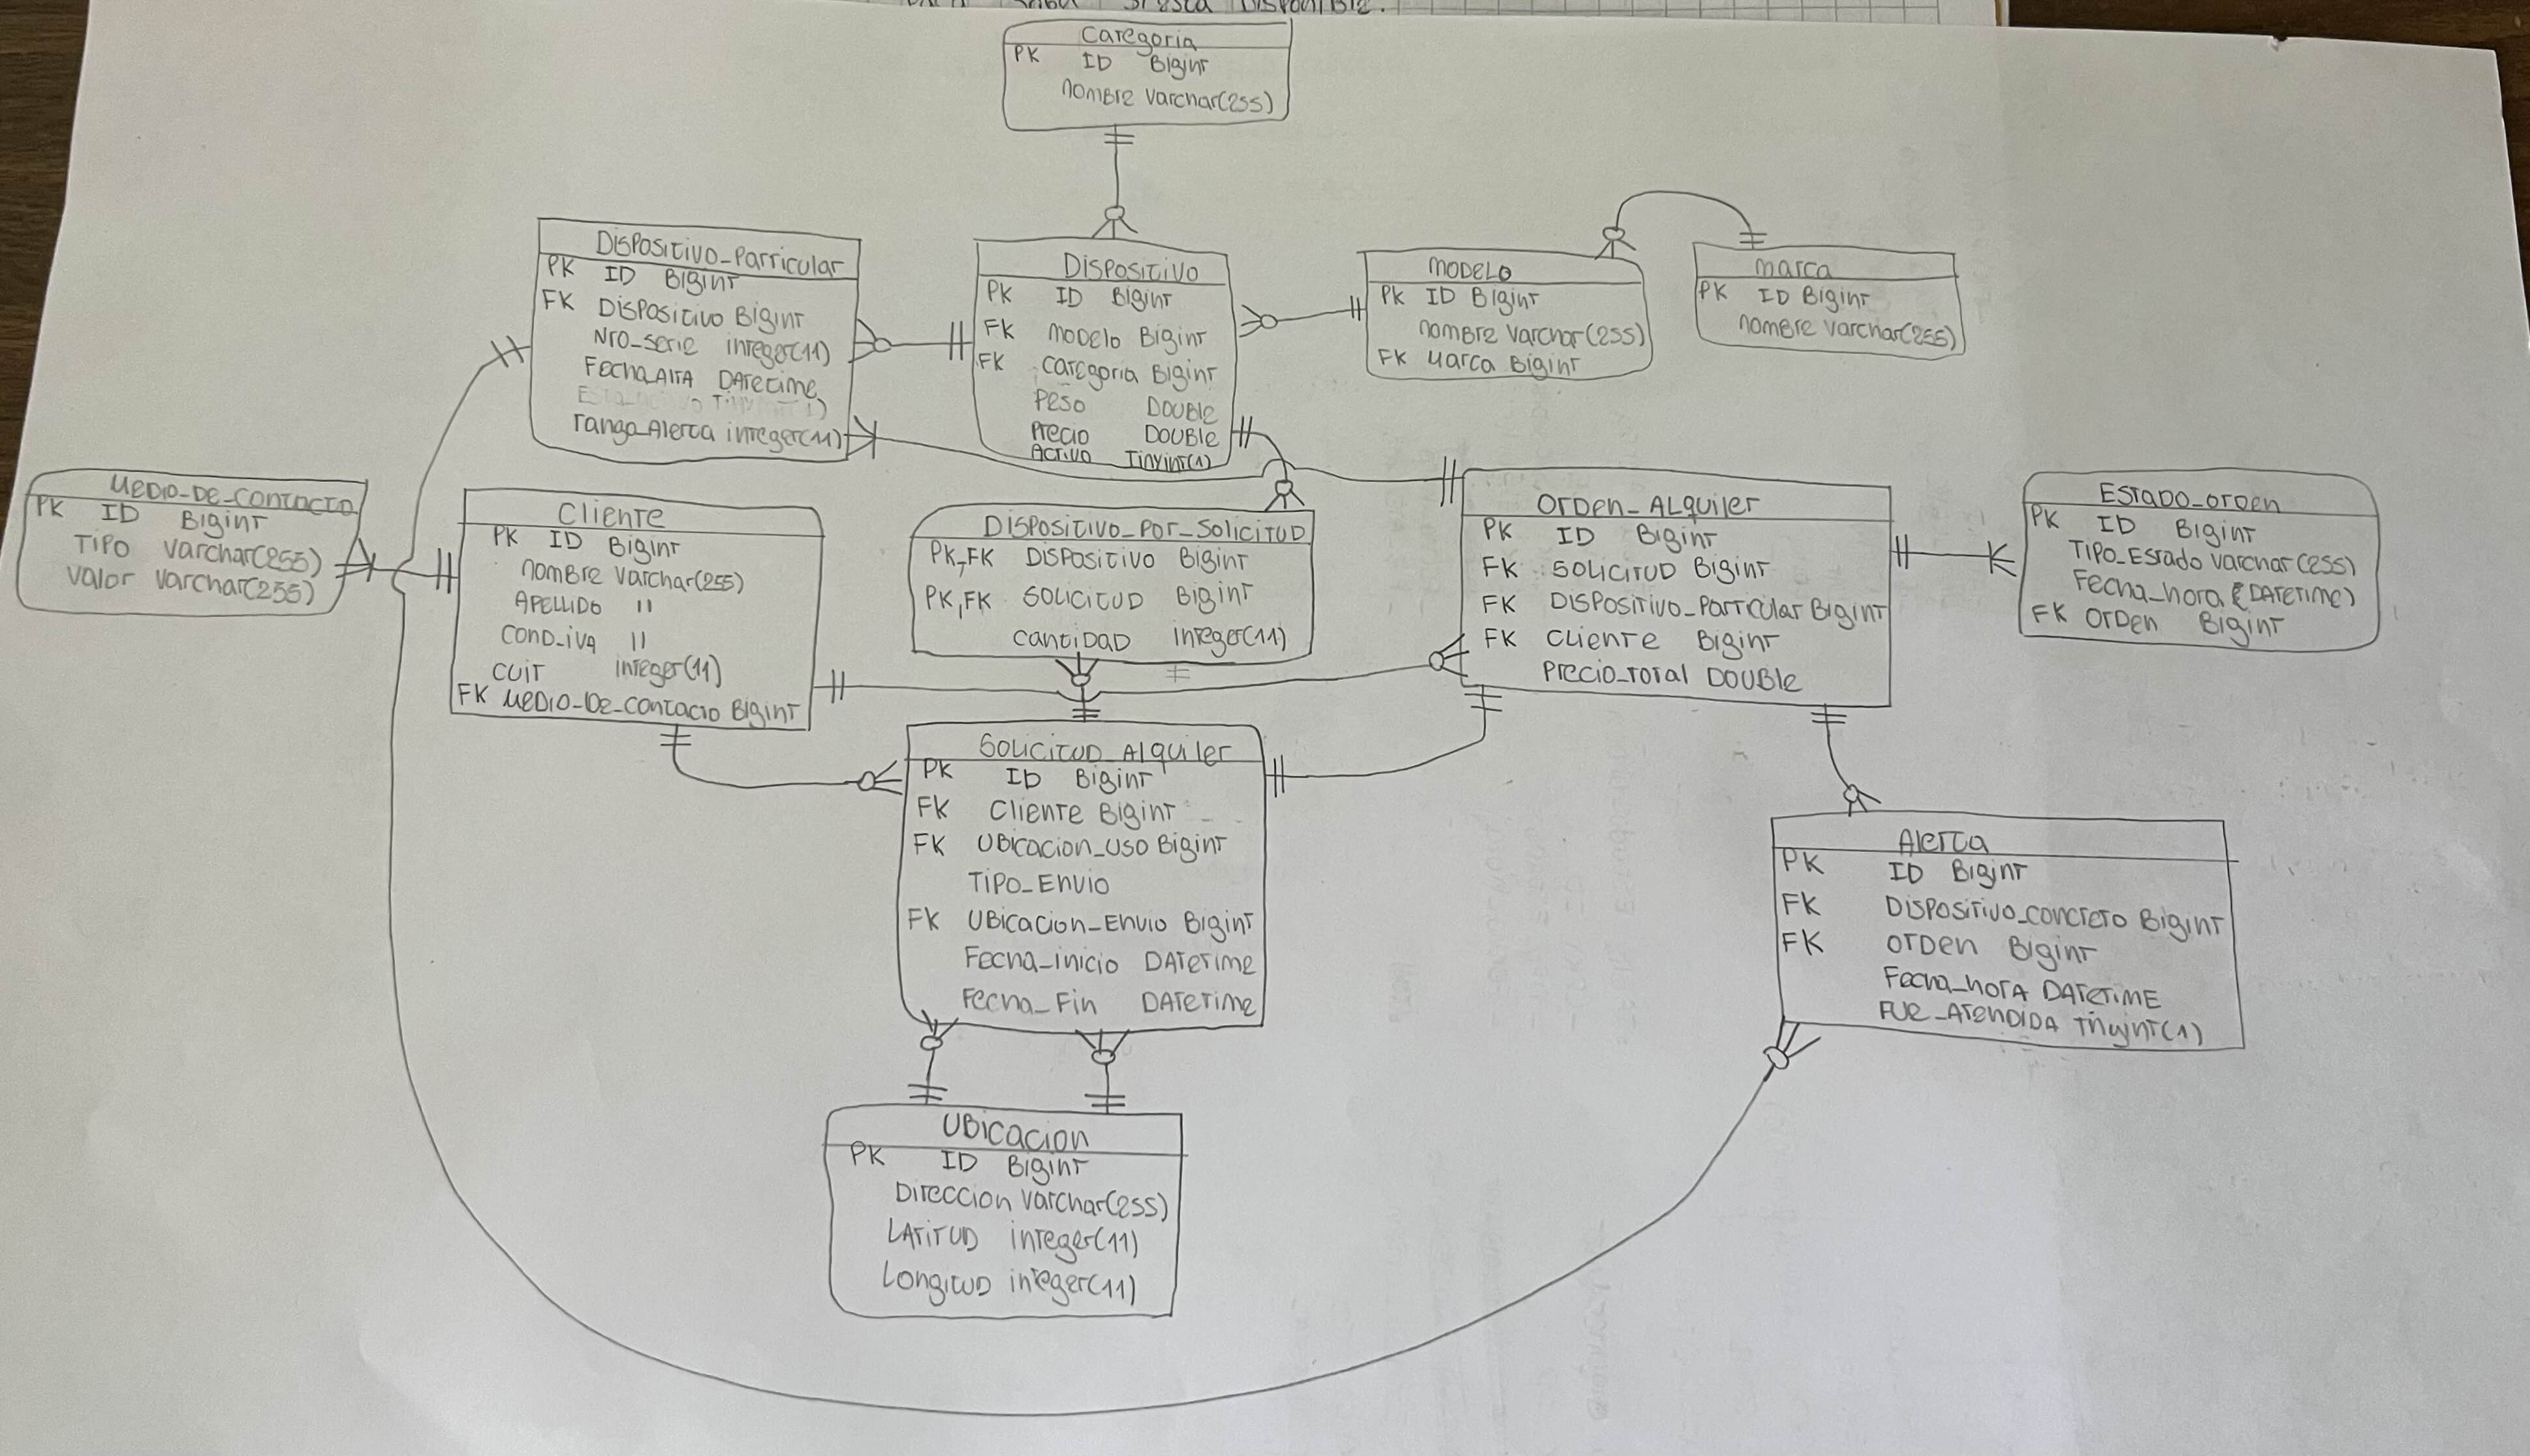 Si está Disponible.
Categoria
PK ID Bigint
nombre varchar(255)
Dispositivo_Particular
PK ID Bigint
FK Dispositivo Bigint
Nro_serie integer(11)
Fecha_Alta Datetime
rango_Alerta integer(11)
Dispositivo
PK ID Bigint
FK modelo Bigint
FK categoria Bigint
Peso DOUBLE
Precio DOUBLE
Activo Tinyint(1)
Modelo
PK ID Bigint
nombre varchar(255)
FK Marca Bigint
Marca
PK ID Bigint
nombre varchar(255)
Medio_De_Contacto
PK ID Bigint
Tipo varchar(255)
valor varchar(255)
Cliente
PK ID Bigint
nombre varchar(255)
Apellido "
Cond_iva "
CUIT integer(11)
FK Medio_De_contacto Bigint
Dispositivo_Por_Solicitud
PK,FK Dispositivo Bigint
PK,FK Solicitud Bigint
cantidad integer(11)
Orden_Alquiler
PK ID Bigint
FK Solicitud Bigint
FK Dispositivo_Particular Bigint
FK Cliente Bigint
Precio_total DOUBLE
Estado_orden
PK ID Bigint
Tipo_Estado varchar(255)
Fecha_hora (DATETIME)
FK Orden Bigint
Solicitud_Alquiler
PK ID Bigint
FK Cliente Bigint
FK Ubicacion_uso Bigint
Tipo_Envio
FK Ubicacion_Envio Bigint
Fecha_inicio DATETIME
Fecha_Fin DATETIME
Alerta
PK ID Bigint
FK Dispositivo_concreto Bigint
FK Orden Bigint
Fecha_hora DATETIME
Fue_Atendida Tinyint(1)
Ubicacion
PK ID Bigint
Direccion varchar(255)
Latitud integer(11)
Longitud integer(11)